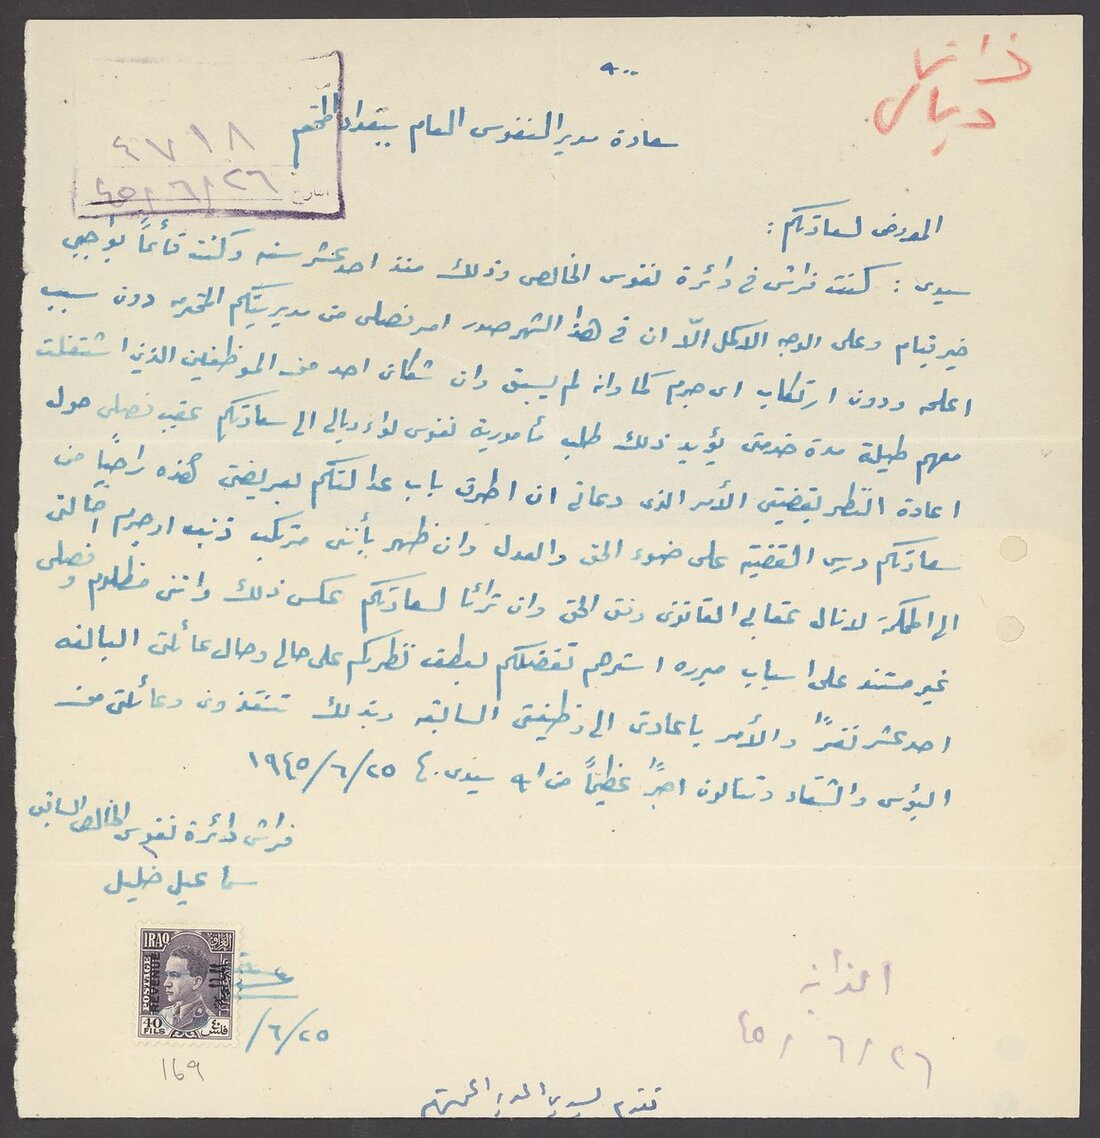 ذاتيا
ديالى
٩٠٠
سعادة مدير النفوس العام ببغداد المحترم
٤٧١٨
التاريخ ٤٥/٦/٢٦
المعروض لسعادتكم :
سيدي : كنت فراش في دائرة نفوس الخالص وذلك منذ احد عشر سنه وكنت قائماً بواجبي
خير قيام وعلى الوجه الاكمل الّا ان في هذا الشهر صدر امر فصلي من مديريتكم المحترمه دون سبب
اعلمه ودون ارتكاب اى جرم كما وانه لم يسبق وان شكاني احد من الموظفين الذين اشتغلت
معهم طيلة مدة خدمتي يؤيد ذلك طلب مأمورية نفوس لواء ديالى الى سعادتكم عقيب فصلي حول
اعادة النظر بقضيتي الأمر الذى دعاني ان اطرق باب عدالتكم بعريضتي هذه راجياً من
سعادتكم درس القضية على ضوء الحق والعدل وان ظهر بأنني مرتكب ذنب او جرم احالتي
الى المحكمة لانال عقابي القانوني وفق الحق وان ترائا لسعادتكم عكس ذلك وانني مظلوم وفصلي
غير مستند على اسباب مبرره استرحم تفضلكم بعطف نظركم على حالي وحال عائلتي البالغه
احد عشر نفراً والأمر باعادتي الى وظيفتي السابقه وبذلك تنقذوني وعائلتي من
البؤس والشقاء وتنالون اجراً عظيماً من الله سيدي. ١٩٤٥/٦/٢٥
فراش دائرة نفوس الخالص السابق
اسماعيل خليل
IRAQ
العراق
POSTAGE
REVENUE
40 FILS
٤٠ فلس
/٦/٢٥
169
الذاتية
٤٥/٦/٢٦
تقدم لسيدي المدير المحترم